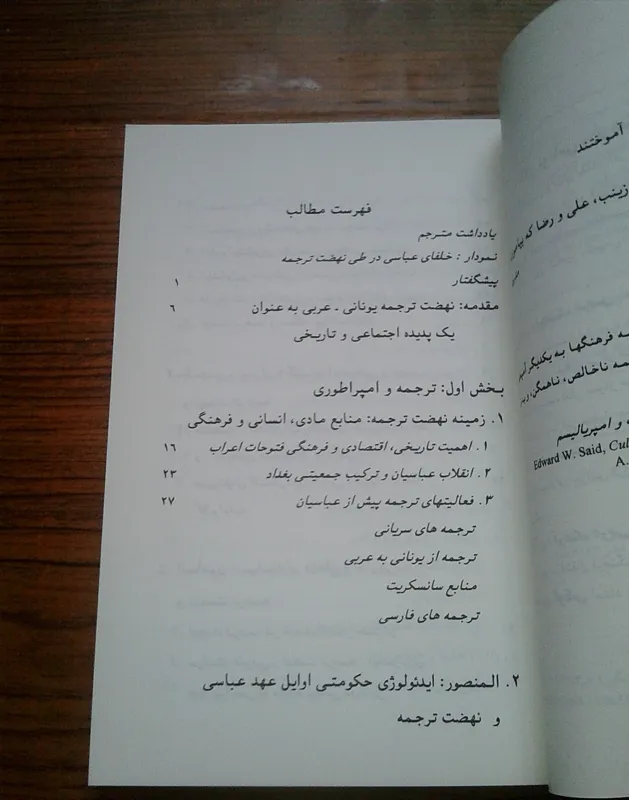 فهرست مطالب
یادداشت مترجم
نمودار : خلفای عباسی در طی نهضت ترجمه
پیشگفتار ۱
مقدمه: نهضت ترجمه یونانی ـ عربی به عنوان ۶
یک پدیده اجتماعی و تاریخی
بخش اول: ترجمه و امپراطوری
۱. زمینه نهضت ترجمه: منابع مادی، انسانی و فرهنگی
۱. اهمیت تاریخی، اقتصادی و فرهنگی فتوحات اعراب ۱۶
۲. انقلاب عباسیان و ترکیب جمعیتی بغداد ۲۳
۳. فعالیتهای ترجمه پیش از عباسیان ۲۷
ترجمه های سریانی
ترجمه از یونانی به عربی
منابع سانسکریت
ترجمه های فارسی
۲. المنصور: ایدئولوژی حکومتی اوایل عهد عباسی
و نهضت ترجمه
آموختند
زینب، علی و رضا که
فرهنگها به یکدیگر
ناخالص، ناهمگن،
و امپریالیسم
Edward W. Said, Cul
A.